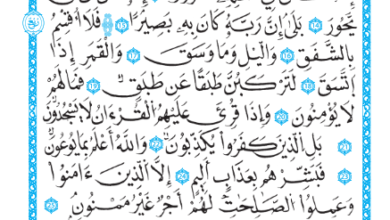 يَحُورَ ١٤ بَلَىٰٓ إِنَّ رَبَّهُۥ كَانَ بِهِۦ بَصِيرًا ١٥ فَلَآ أُقْسِمُ
بِٱلشَّفَقِ ١٦ وَٱلَّيْلِ وَمَا وَسَقَ ١٧ وَٱلْقَمَرِ إِذَا
ٱتَّسَقَ ١٨ لَتَرْكَبُنَّ طَبَقًا عَن طَبَقٍ ١٩ فَمَا لَهُمْ
لَا يُؤْمِنُونَ ٢٠ وَإِذَا قُرِئَ عَلَيْهِمُ ٱلْقُرْءَانُ لَا يَسْجُدُونَ
٢١ بَلِ ٱلَّذِينَ كَفَرُوا۟ يُكَذِّبُونَ ٢٢ وَٱللَّهُ أَعْلَمُ بِمَا يُوعُونَ
٢٣ فَبَشِّرْهُم بِعَذَابٍ أَلِيمٍ ٢٤ إِلَّا ٱلَّذِينَ ءَامَنُوا۟
وَعَمِلُوا۟ ٱلصَّٰلِحَٰتِ لَهُمْ أَجْرٌ غَيْرُ مَمْنُونٍۭ ٢٥